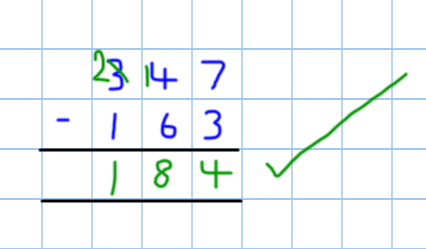 2 3 1 4 7
- 1 6 3
1 8 4 ✓